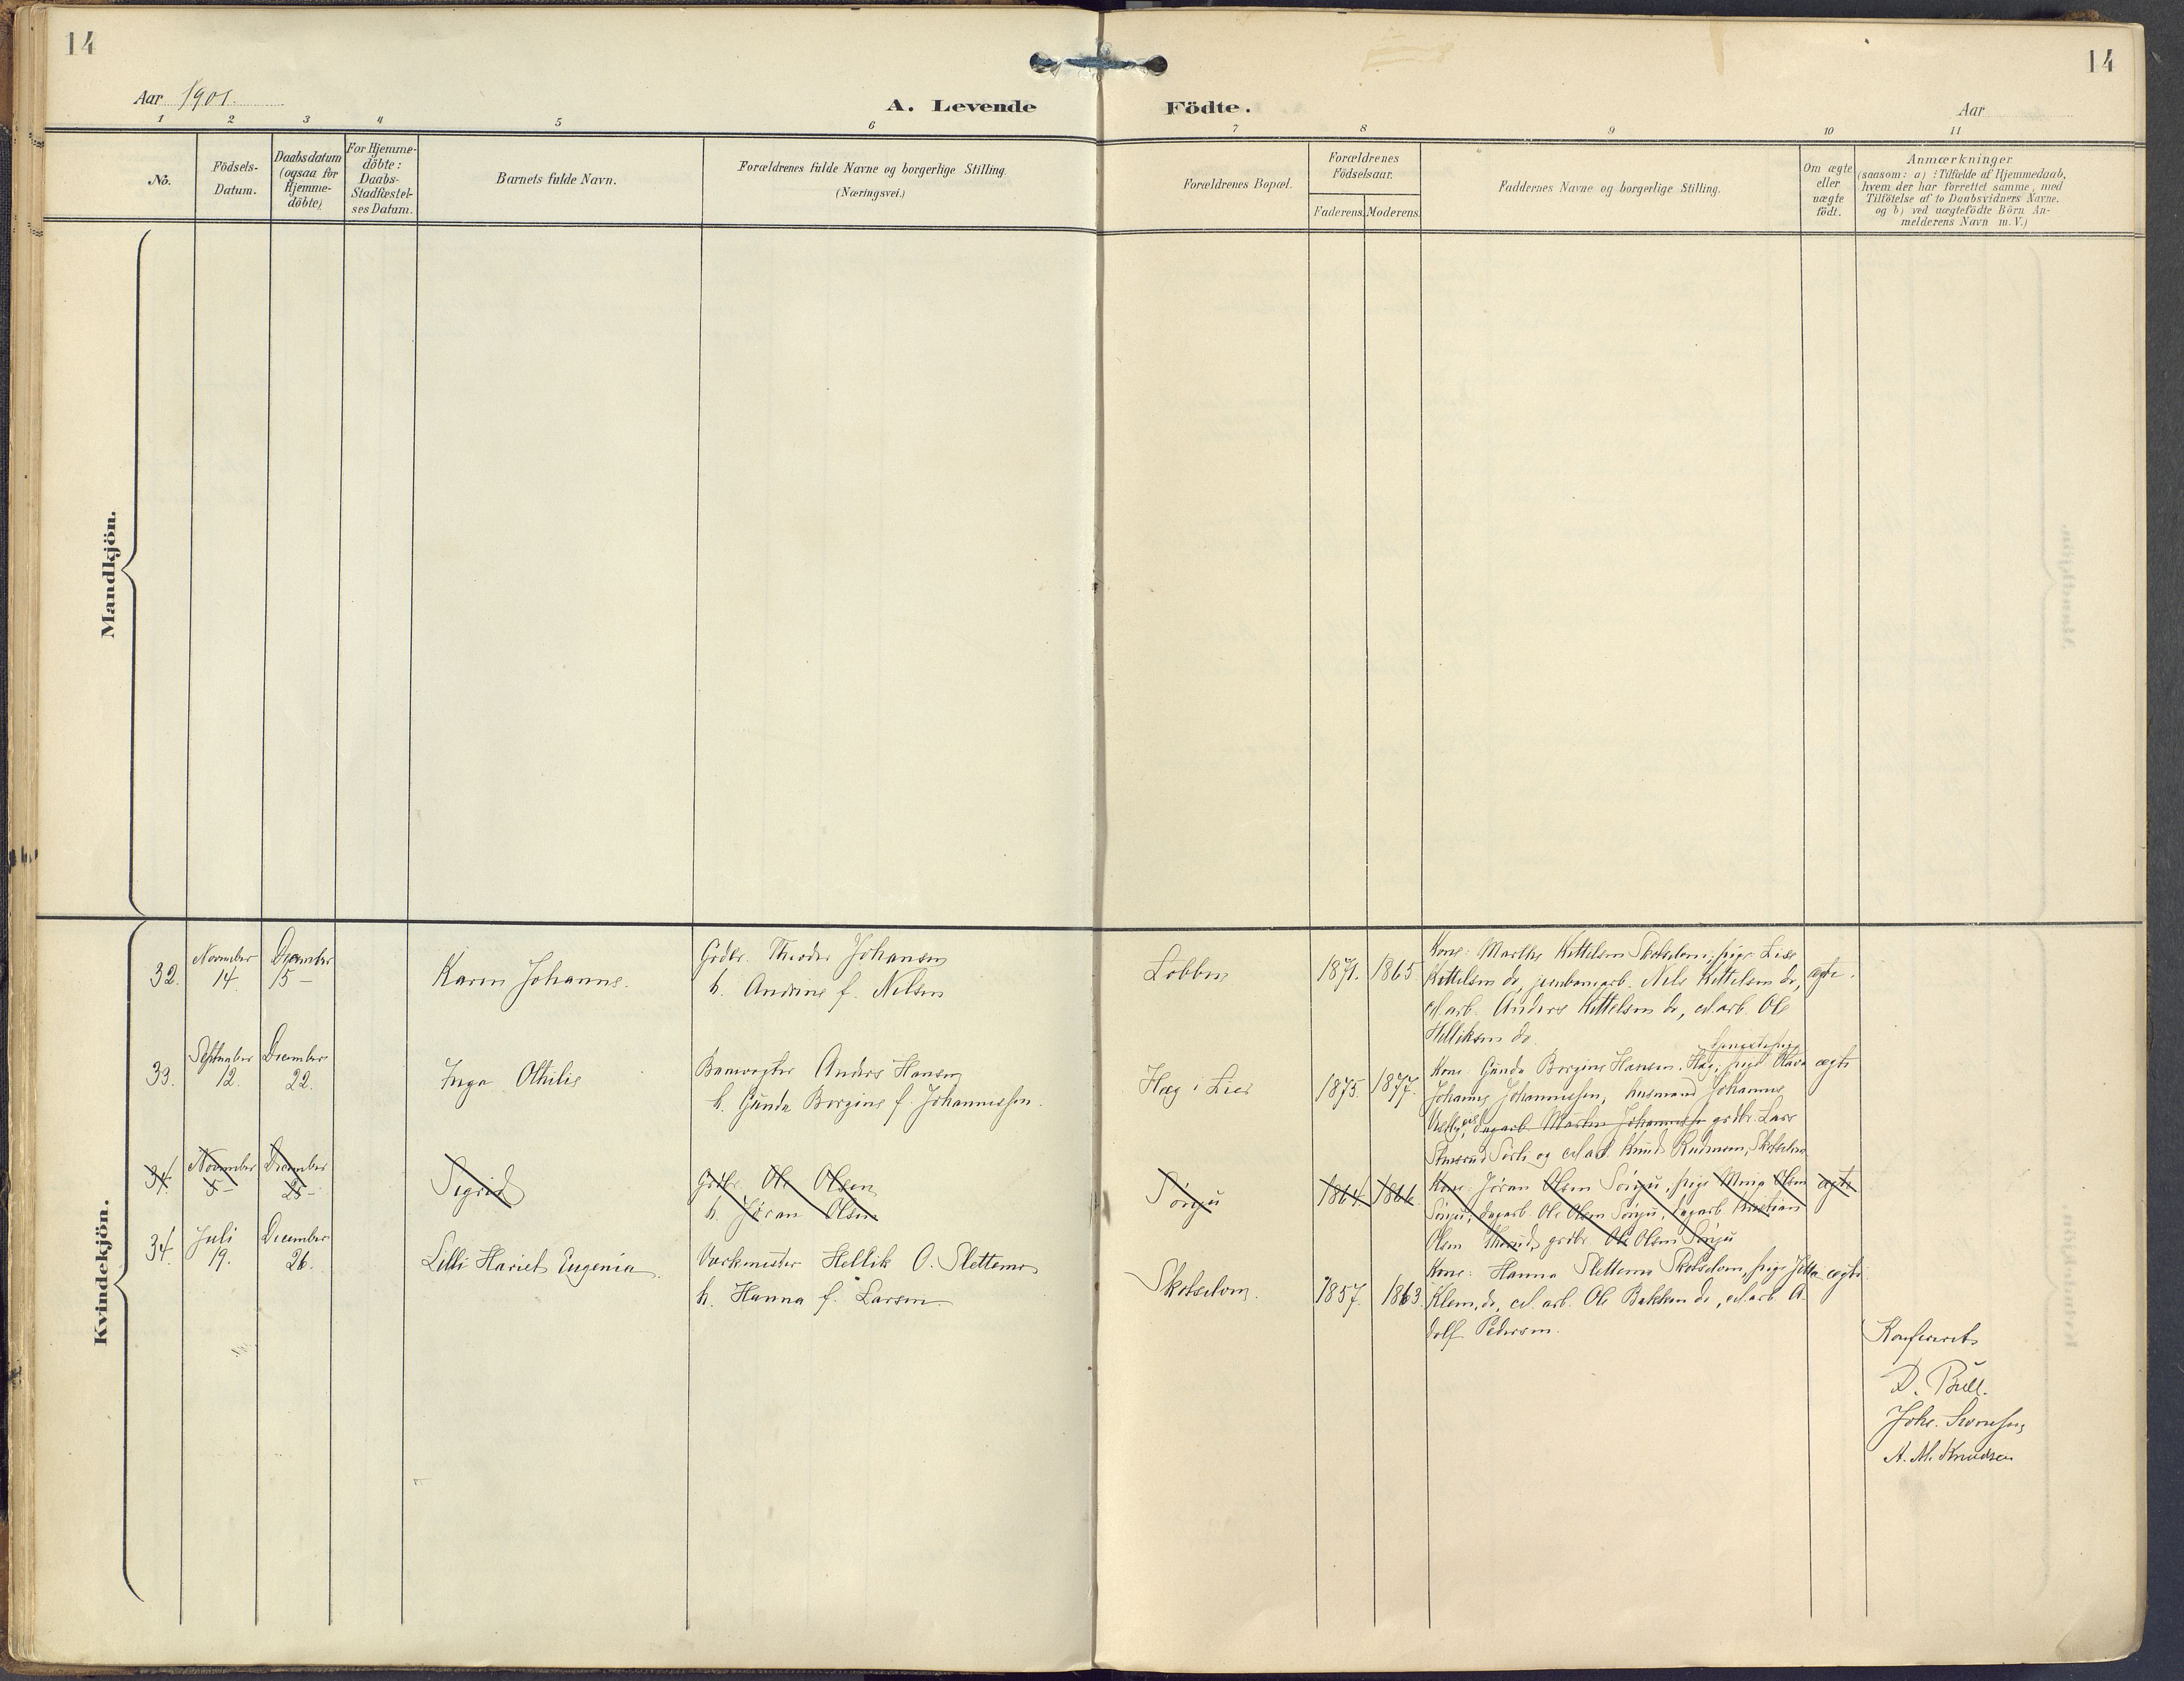 14
14
Aar 1901.
A. Levende
Födte.
Aar
1 2 3 4 5 6 7 8 9 10 11
No.
Födsels-
Datum.
Daabsdatum
(ogsaa for
Hjemme-
döbte)
For Hjemme-
döbte:
Daabs-
Stadfæstel-
ses Datum.
Barnets fulde Navn.
Forældrenes fulde Navne og borgerlige Stilling.
(Næringsvei.)
Forældrenes Bopæl.
Forældrenes
Födselsaar.
Faderens. Moderens.
Faddernes Navne og borgerlige Stilling.
Om ægte
eller
uægte
födt.
Anmærkninger
(saasom: a) i Tilfælde af Hjemmedaab,
hvem der har forrettet samme, med
Tilföielse af to Daabsvidners Navne,
og b) ved uægtefödte Börn An-
melderens Navn m.V.)
Mandkjön.
Kvindekjön.
32.
November
14
December
15 –
Karen Johanne.
Grdbr. Theodor Johansen
h. Andrine f. Nelsen
1871.
1865
Kone: Marthe Kittelsen Skotselven, pige Lise
Kittelsen do, jernbanearb. Nels Kittelsen do,
cel.arb. Anders Kittelsen do, cel.arb. Ole
Helliksen do.
ægte.
33.
September
12.
December
22.
Inga Othilie
Banevogter Anders Hansen
h. Gunda Borgine f. Johannessen.
Hæg i Lier
1875.
1877.
Kone Gunda Borgine Hansen, Hæg, pige Olava
Johanne Johannessen, husmand Johannes
dagarb. Martin Johannessen grdbr. Lars
og cel.arb. Knud Skotselven
ægte
34.
November
5 –
December
25 –
Sigrid
Grdbr. Ole Olsen
h. Jøran Olsen
1864.
1866.
Kone: Jøran Olsen pige Olsen
dagarb. Ole Olsen dagarb. Kristian
Olsen grdbr Ole Olsen
ægte
34.
Juli
19.
December
26.
Lilli Hariet Eugenia.
Værkmester Hellik O. Slettemo
h. Hanna f. Larsen
Skotselven.
1857.
1863.
Kone: Hanna Slettemo Skotselven, pige
do, cel.arb. Ole Bakken do, cel.arb. A-
dolf Pedersen.
ægte
Konfereret
D. Bull.
A. M. Knudsen